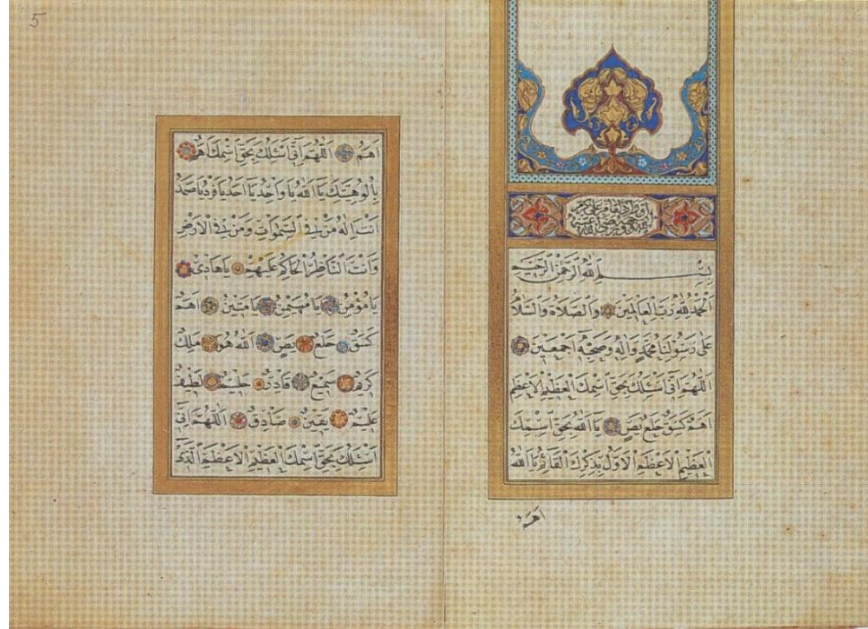 اوراد امام علی کرم
الله وجهه ورضی الله عنه
بسم الله الرحمن الرحيم
اَلْحَمْدُ لِلّٰهِ رَبِّ الْعَالَمِينَ وَالصَّلَاةُ وَالسَّلَامُ
عَلَى رَسُولِنَا مُحَمَّدٍ وَاٰلِهِ وَصَحْبِهِ اَجْمَعِينَ
اَللّٰهُمَّ اِنِّي اَسْئَلُكَ بِحَقِّ اسْمِكَ الْعَظِيمِ الْاَعْظَمِ
اهم كسق حلع نص يَا اَللّٰهُ بِحَقِّ اسْمِكَ
الْعَظِيمِ الْاَعْظَمِ الْاَوَّلِ بِذِكْرِكَ الْقَائِمُ يَا اَللّٰهُ
اهم
5
اهم اَللّٰهُمَّ اِنِّي اَسْئَلُكَ بِحَقِّ اسْمِكَ
بِاُلُوهِيَّتِكَ يَا اَللّٰهُ يَا وَاحِدُ يَا اَحَدُ يَا فَرْدُ يَا صَمَدُ
اَنْتَ اِلٰهُ مَنْ فِي السَّمٰوَاتِ وَمَنْ فِي الْاَرْضِ
وَاَنْتَ النَّاظِرُ الْحَاكِمُ عَلَيْهِمْ يَا هَادِي
يَا مُؤْمِنُ يَا مُهَيْمِنُ يَا مَتِينُ اهم
كسق حلع يص اَللّٰهُ هُوَ مَلِكٌ
كَرِيمٌ سَمِيعٌ قَادِرٌ حَلِيمٌ لَطِيفٌ
عَلِيمٌ يَقِينٌ صَادِقٌ اَللّٰهُمَّ اِنِّي
اَسْئَلُكَ بِحَقِّ اسْمِكَ الْعَظِيمِ الْاَعْظَمِ